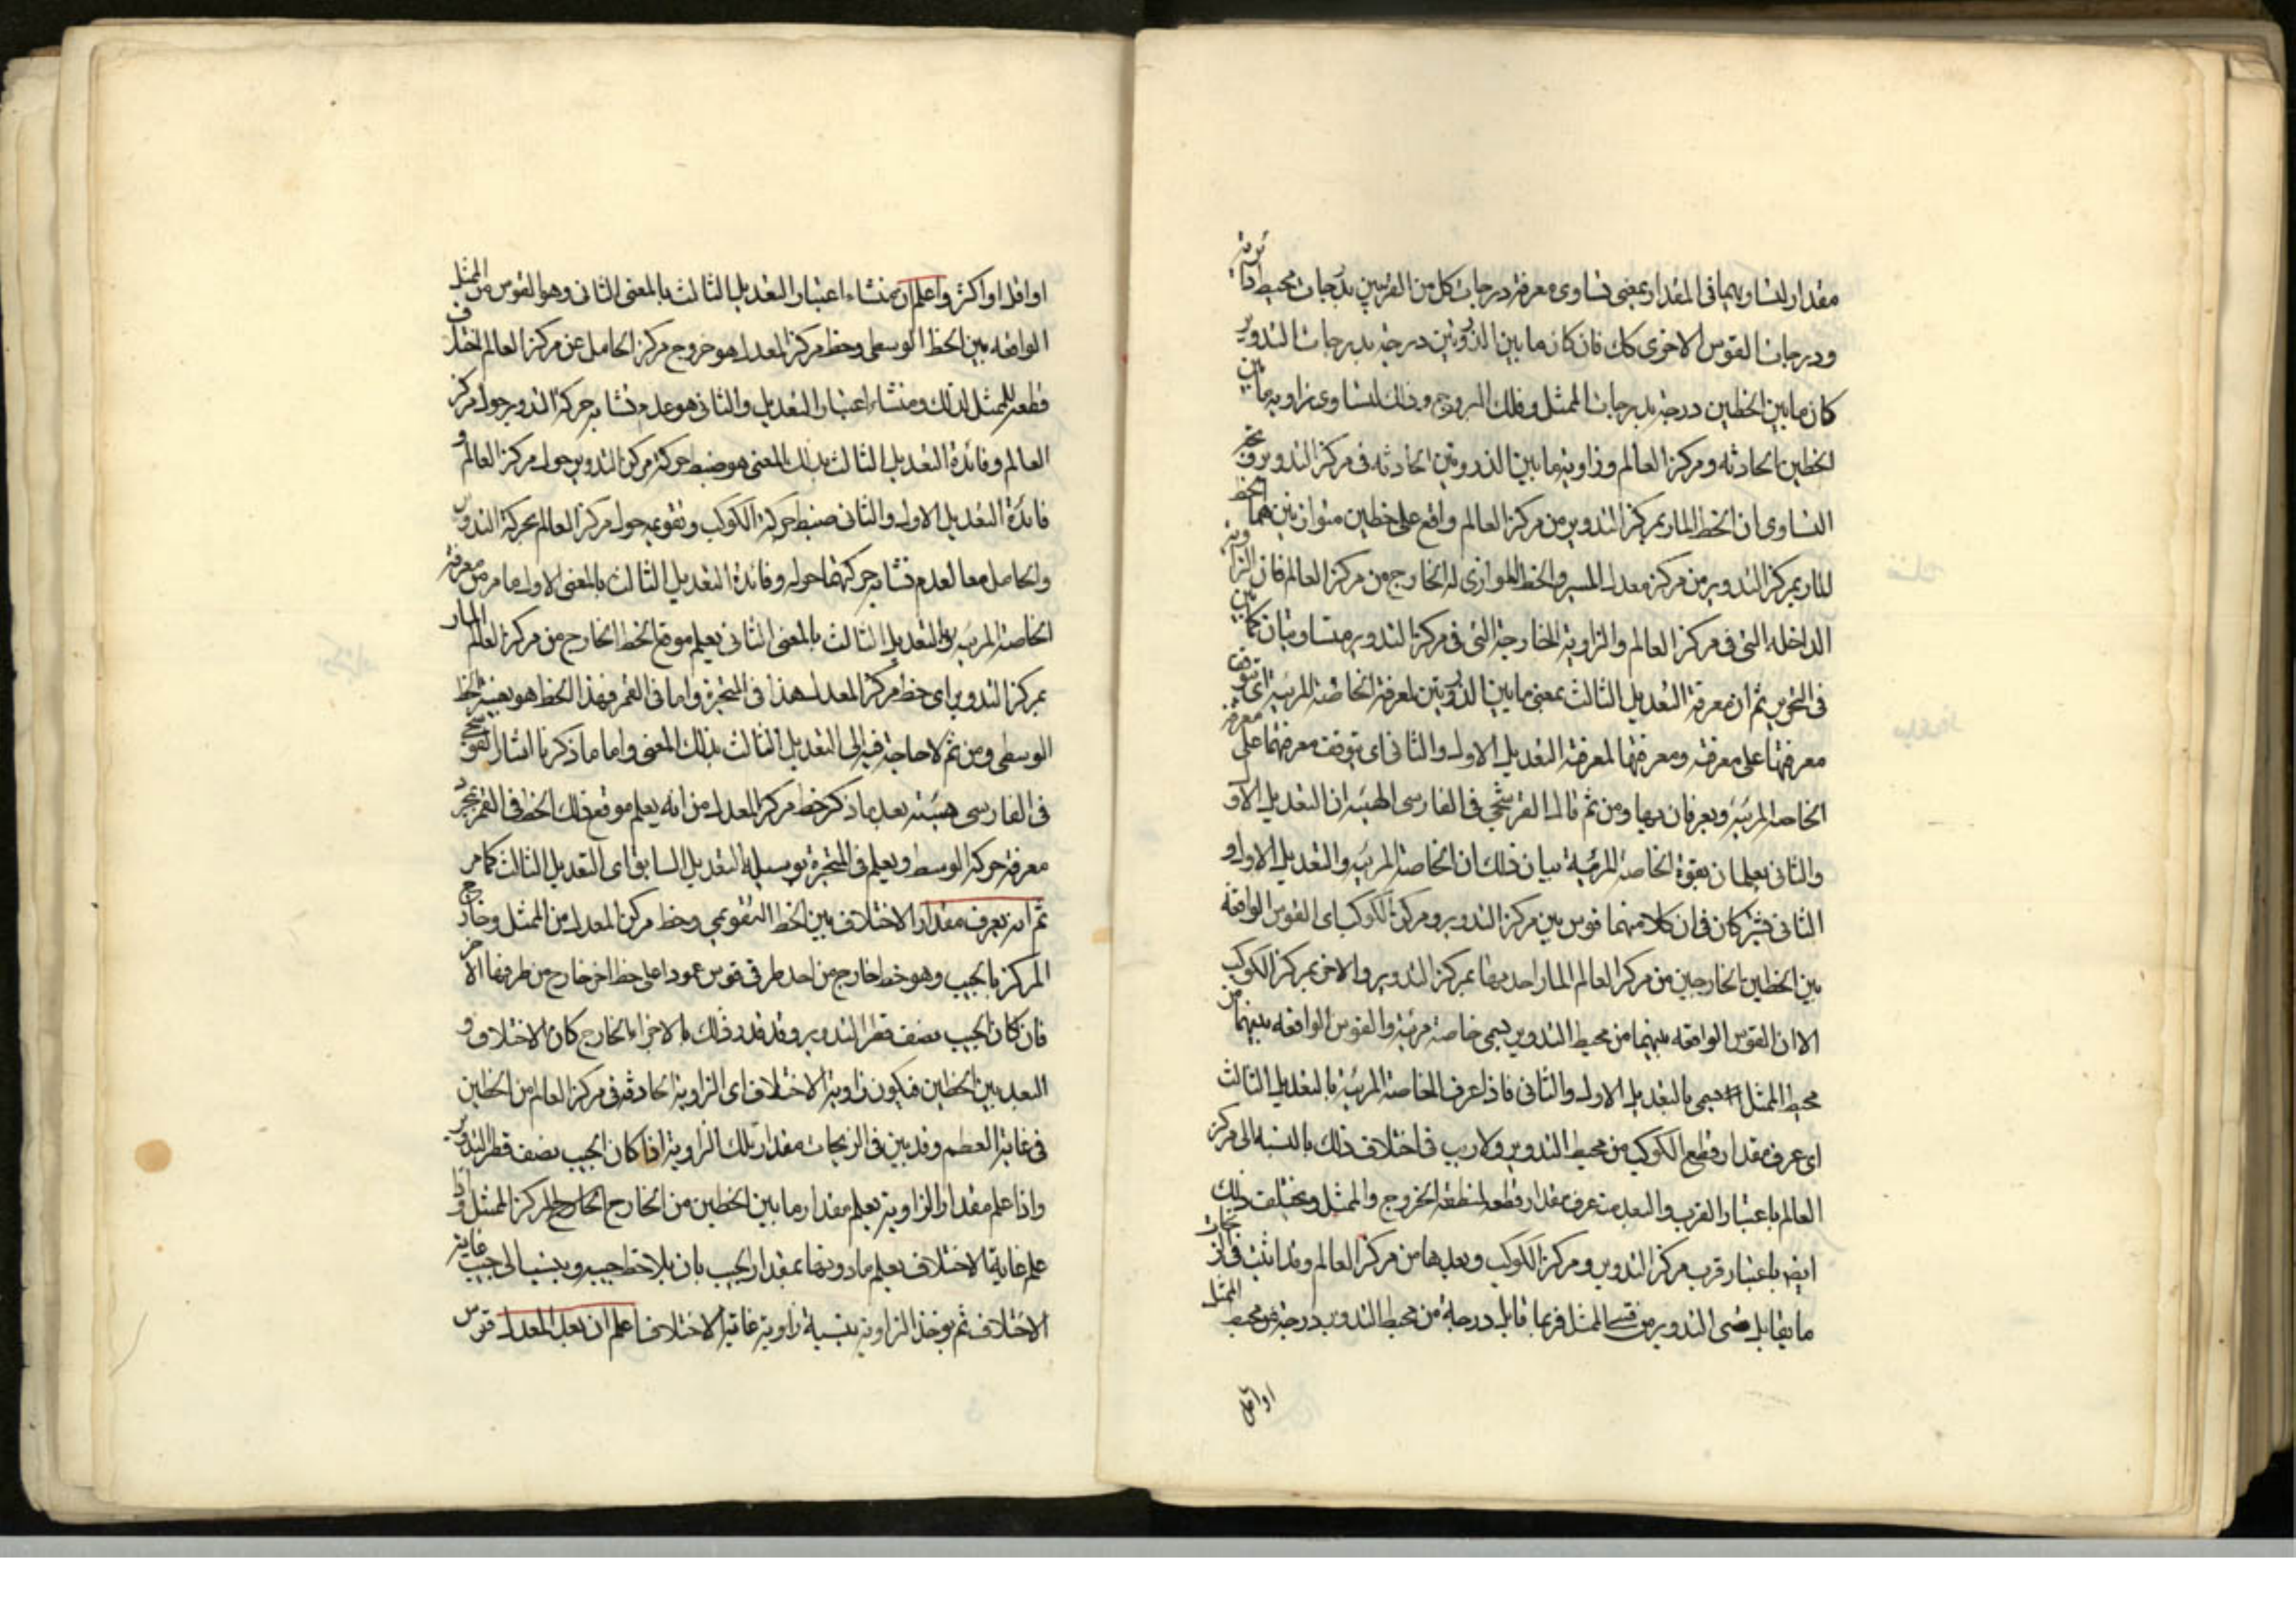 مقدار لتساويهما فى المقدار بمعنى تساوى معرفة درجات كل من القوسين بدرجات محيط دائرته
ودرجات القوس الاخرى كك فان كان ما بين الذروتين درجة بدرجات التدوير
كان ما بين الخطين درجة بدرجات الممثل وفلك البروج وذلك لتساوى زاوية ما بين
الخطين الحادثه ومركز العالم وزاوية ما بين الذروتين الحادثه فى مركز التدوير
التساوى ان الخط المار بمركز التدوير من مركز العالم واقع على خطين متوازيين هما الخط
المار بمركز التدوير من مركز معدل المسير والخط الموازى له الخارج من مركز العالم فان الزاوية
الداخله التى فى مركز العالم والزاوية الخارجة التى فى مركز التدوير متساويتان كما بين
فى التحرير ثم ان معرفة التعديل الثالث بمعنى ما بين الذروتين لمعرفة الخاصة المرئية اى يتوقف
معرفتها على معرفته ومعرفتها لمعرفة التعديل الاول والثانى اى يتوقف معرفتهما على معرفة
الخاصة المرئية ويعرفان بها ومن ثم قال القوشجى فى الفارسى الهيئة ان التعديل الاول
والثانى يعلمان بقوة الخاصة المرئية بيان ذلك ان الخاصة المرئية والتعديل الاول و
الثانى يشتركان فى ان كلا منهما قوس بين مركز التدوير ومركز الكوكب اى القوس الواقعة
بين الخطين الخارجين من مركز العالم المار احدهما بمركز التدوير والاخر بمركز الكوكب
الا ان القوس الواقعه بينهما من محيط التدوير يسمى خاصة مرئية والقوس الواقعه بينهما من
محيط الممثل يسمى بالتعديل الاول والثانى فاذا عرف الخاصة المرئية بالتعديل الثالث
اى عرف مقدار قطع الكوكب من محيط التدوير ولا ريب فى اختلاف ذلك بالنسبه الى مركز
العالم باعتبار القرب والبعد منه عرف مقدار قطعه لمنطقة الخروج والممثل ويختلف ذلك
ايضا باعتبار قرب مركز التدوير ومركز الكوكب وبعدهما من مركز العالم وقد اثبت فى الزيجات
ما يقابل قسى التدوير من قسى الممثل فربما قابل درجة من محيط التدوير درجة من محيط الممثل
او اقل
او اقل او اكثر واعلم ان منشاء اعتبار التعديل الثالث بالمعنى الثانى وهو القوس من الممثل
الواقعه بين الخط الوسطى وخط مركز المعدل هو خروج مركز الحامل عن مركز العالم فاختلف
قطعه للممثل لذلك ومنشاء اعتبار التعديل والثانى هو عدم تشابه حركة التدوير حول مركز
العالم وفائدة التعديل الثالث بذلك المعنى هو ضبط حركة مركز التدوير حول مركز العالم و
فائدة التعديل الاول والثانى ضبط حركة الكوكب وتقويمه حول مركز العالم بحركة التدوير
والحامل معا لعدم تشابه حركتهما حوله وفائدة التعديل الثالث بالمعنى الاول ما مر من معرفة
الخاصة المرئية والتعديل الثالث بالمعنى الثانى يعلم موقع الخط الخارج من مركز العالم المار
بمركز التدوير اى خط مركز المعدل هذا فى المتحيرة واما فى القمر فهذا الخط هو بعينه الخط
الوسطى ومن ثم لا حاجة فيه الى التعديل الثالث بذلك المعنى واما ما ذكرنا اشار القوشجى
فى الفارسى هيئته بعد ما ذكر خط مركز المعدل من انه يعلم موقع ذلك الخط فى القمر بمجرد
معرفة حركة الوسط ويعلم فى المتحيرة بوسيلة التعديل السابق اى التعديل الثالث كما مر
ثم انه يعرف مقدار الاختلاف بين الخط التقويمى وخط مركز المعدل من الممثل وخارج
المركز بالجيب وهو خط خارج من احد طرفى قوس عمودا على خط اخر خارج من طرفها الاخر
فان كان الجيب نصف قطر التدوير وقد قدر ذلك بالاجزاء الخارج كان الاختلاف و
البعد بين الخطين فيكون زاوية الاختلاف اى الزاوية الحادثة فى مركز العالم من الخطين
فى غاية العظم وقد بين فى الزيجات مقدار تلك الزاوية اذا كان الجيب نصف قطر التدوير
واذا علم مقدار الزاوية يعلم مقدار ما بين الخطين من الخارج المركز الممثل واذا
علم غاية الاختلاف يعلم ما دونها بمقدار الجيب بان يلاحظ جيبه وينسب الى جيب غاية
الاختلاف ثم يوخذ الزاوية بنسبة زاوية غاية الاختلاف اعلم ان بعد المعدل قوس